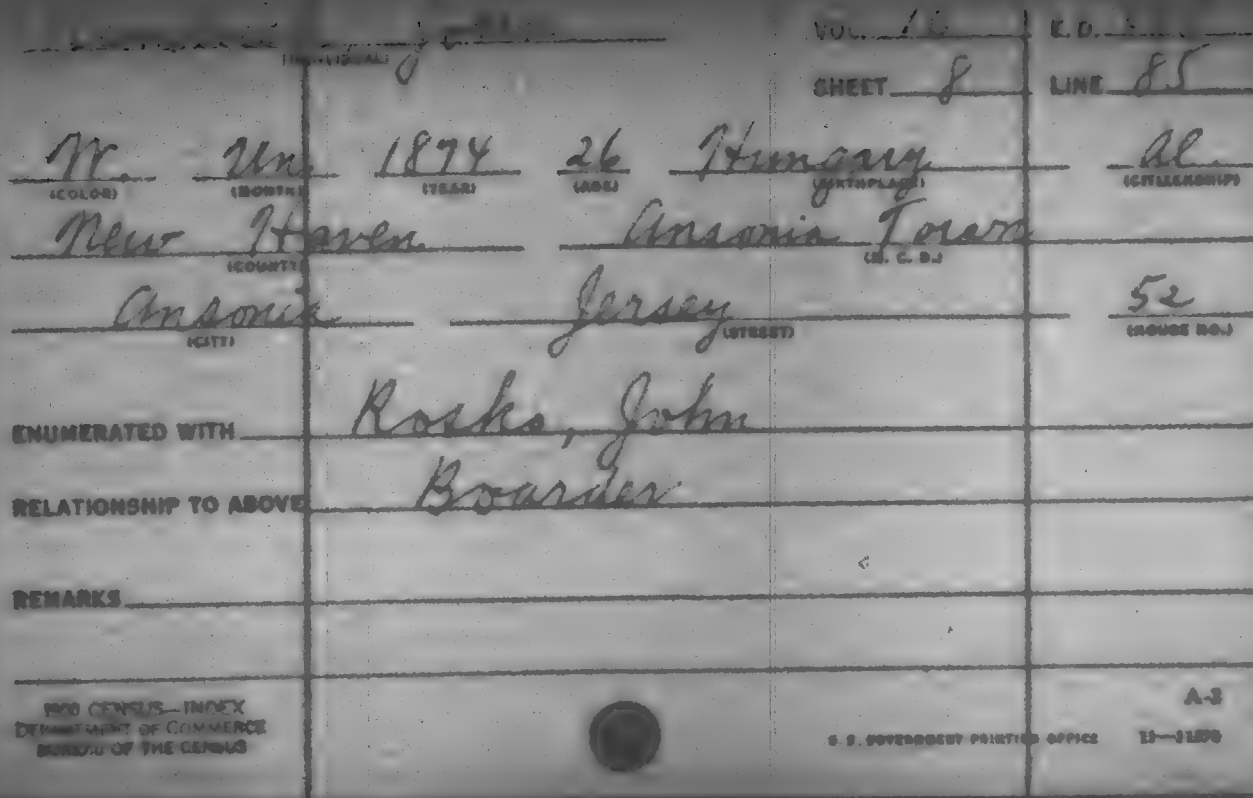 (INDIVIDUAL)
VOL. 16 E.D.
SHEET 8 LINE 85
W. Un. 1874 26 Hungary al.
(COLOR) (MONTH) (YEAR) (AGE) (BIRTHPLACE) (CITIZENSHIP)
New Haven Ansonia Town
(COUNTY) (M. C. D.)
Ansonia Jersey 52
(CITY) (STREET) (HOUSE NO.)
ENUMERATED WITH Rosko, John
RELATIONSHIP TO ABOVE Boarder
REMARKS
1900 CENSUS—INDEX
DEPARTMENT OF COMMERCE
BUREAU OF THE CENSUS
A-2
U. S. GOVERNMENT PRINTING OFFICE